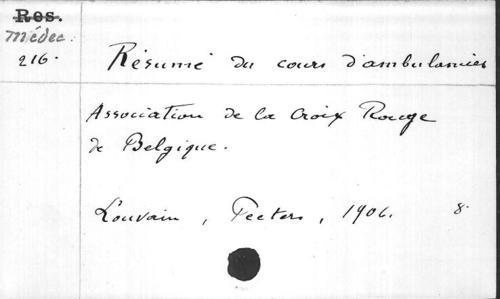 Res.
Médec.
216.
Résumé du cours d'ambulancier
Association de la Croix Rouge
de Belgique.
Louvain, Peeters, 1906. 8.